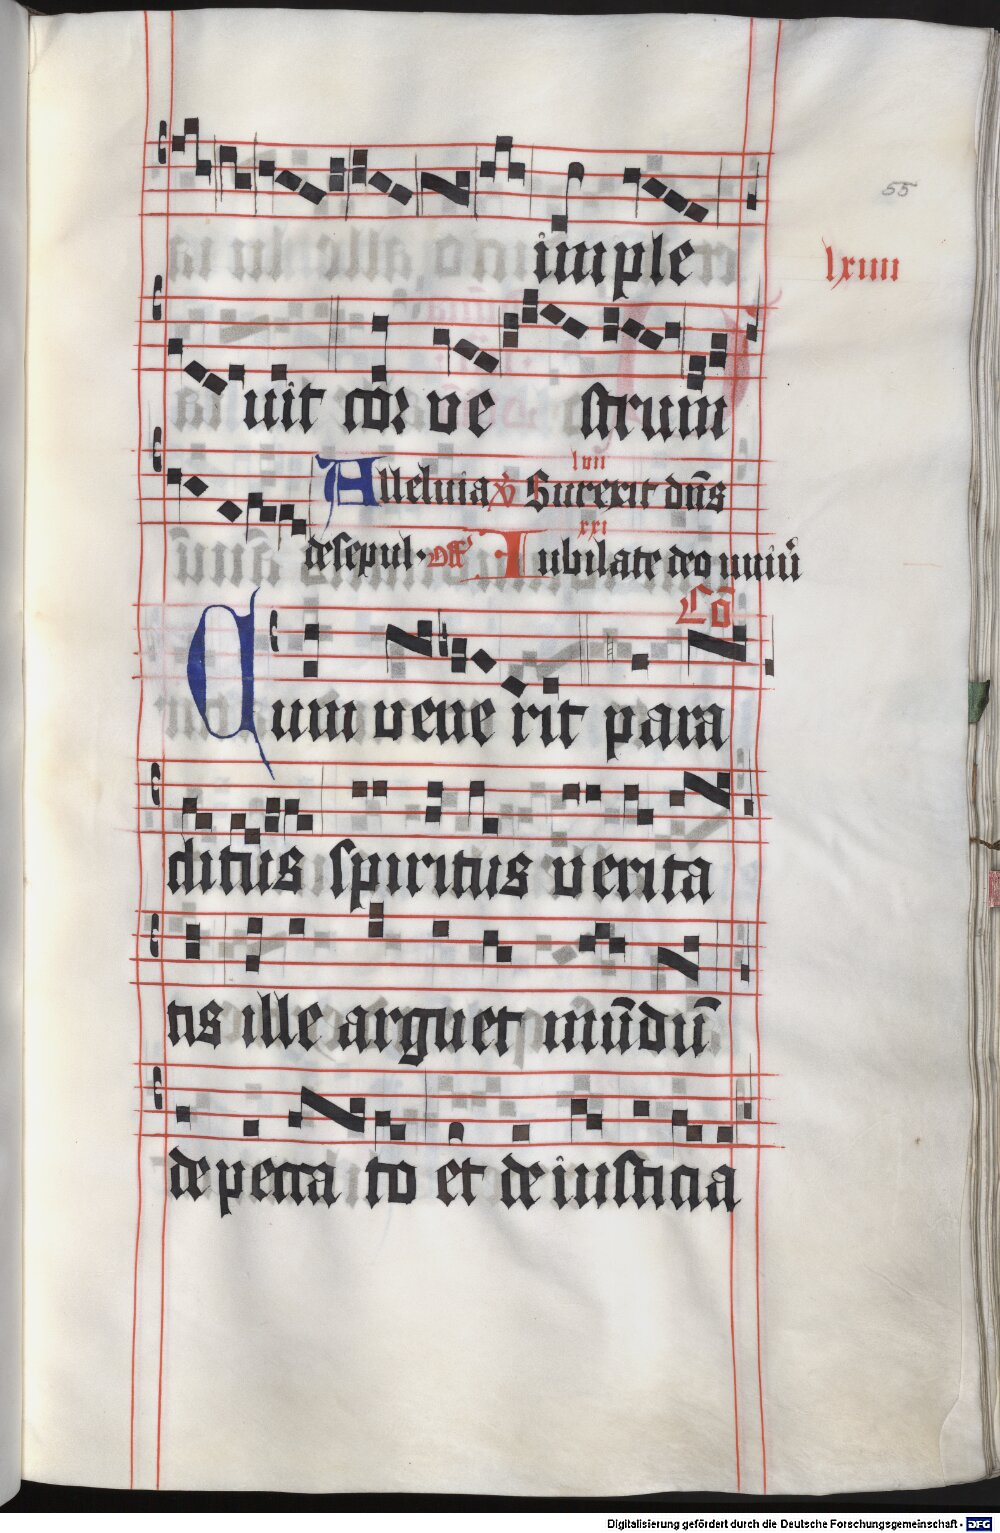 55
imple
lxiiii
uit cor ve strum
lvii
Alleluia ℣ Surrexit dn̄s
xxi
de sepul. Off' Iubilate deo univ̄
Cō
Cum vene rit para
clitus spiritus verita
tis ille arguet mūdū
de pecca to et de iusticia
Digitalisierung gefördert durch die Deutsche Forschungsgemeinschaft - DFG